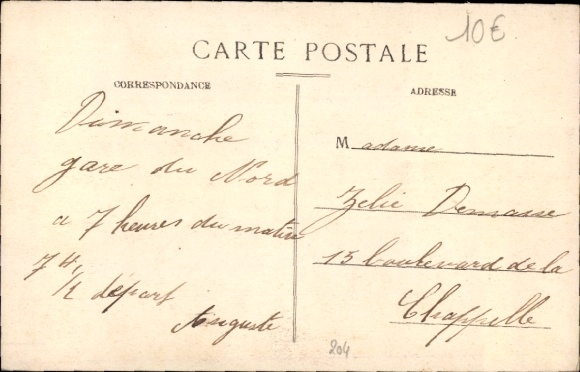 10€
CARTE POSTALE
CORRESPONDANCE
Dimanche
gare du Nord
a 7 heures du matin
7 H 1/2 départ
Auguste
ADRESSE
Madame
Zelie Demasse
13 boulevard de la
Chappelle
204